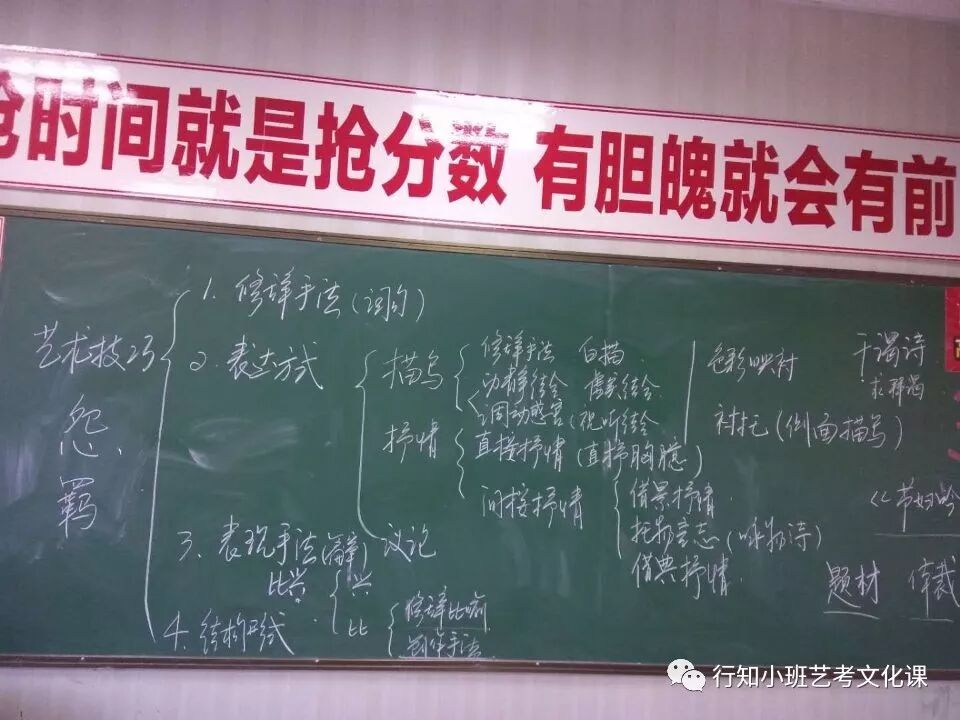 抢时间就是抢分数 有胆魄就会有前
艺术技巧
怨、
羁
1. 修辞手法(词句)
2. 表达方式
描写
修辞手法 白描
动静结合 虚实结合
调动感官(视听结合
色彩映衬
衬托(侧面描写)
干谒诗
求拜谒
抒情
直接抒情(直抒胸臆)
间接抒情
借景抒情
托物言志(咏物诗)
借典抒情
议论
3、表现手法
比兴
兴
比
修辞比喻
创作手法
4. 结构形式
<<节妇吟
题材 体裁
行知小班艺考文化课